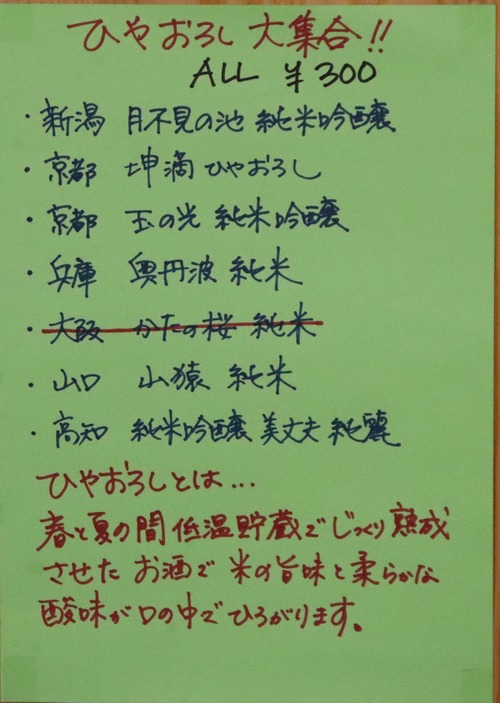 ひやおろし 大集合!!
ALL ¥300
・新潟 月不見の池 純米吟醸
・京都 坤滴 ひやおろし
・京都 玉の光 純米吟醸
・兵庫 奥丹波 純米
・大阪 かたの桜 純米
・山口 山猿 純米
・高知 純米吟醸 美丈夫 純麗
ひやおろしとは...
春と夏の間 低温貯蔵でじっくり熟成
させた お酒で 米の旨味と柔らかな
酸味が口の中でひろがります。